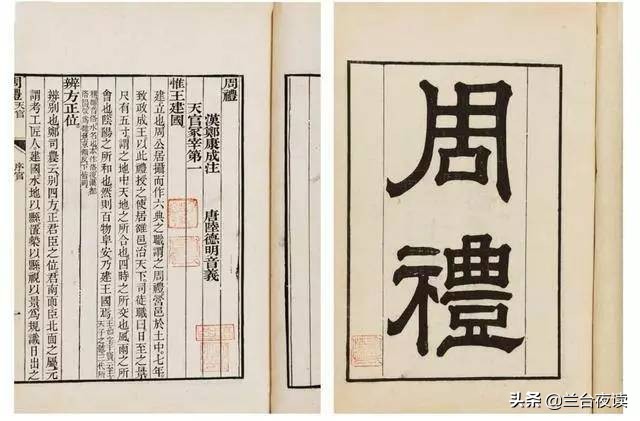 周禮
周禮
漢鄭康成注 唐陸德明音義
天官冢宰第一
惟王建國
建立也周公居攝而作六典之職謂之周禮營邑於土中七年
致政成王以此禮授之使居雒邑治天下司徒職曰日至之景
尺有五寸謂之地中天地之所合也四時之所交也風雨之所
會也陰陽之所和也然則百物阜安乃建王國焉
辨方正位
辨別也鄭司農云別四方正君臣之位君南面臣北面之屬元
謂考工匠人建國水地以縣置槷以縣視以景爲規識日出之
周禮 天官 序官
头条 @兰台夜读